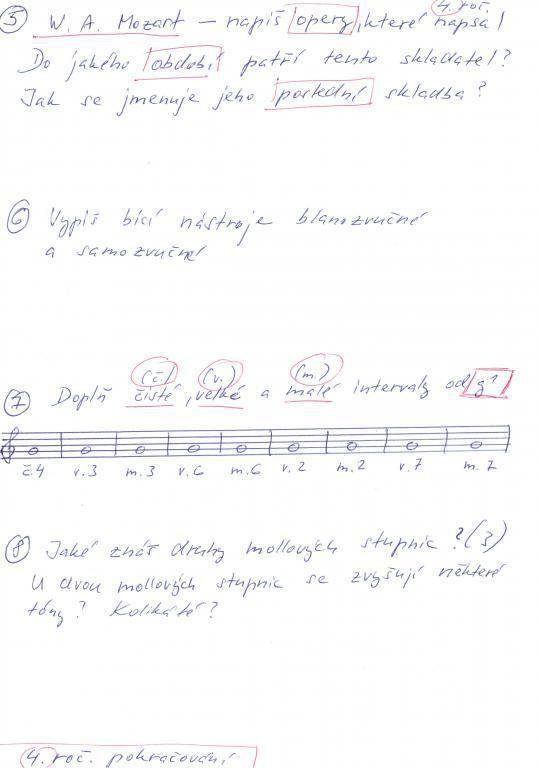 4. roč.
5 W. A. Mozart – napiš opery, které napsal
Do jakého období patří tento skladatel?
Jak se jmenuje jeho poslední skladba?
6 Vypiš bicí nástroje blanozvučné
a samozvučné
(č.) (v.) (m.)
7 Doplň čisté, velké a malé intervaly od g¹
č.4 v.3 m.3 v.6 m.6 v.2 m.2 v.7 m.7
8 Jaké znáš druhy mollových stupnic? (3)
U dvou mollových stupnic se zvyšují některé
tóny? Kolikáté?
4. roč. pokračování